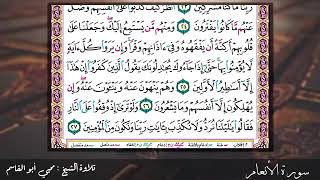 رَبِّنَا مَا كُنَّا مُشْرِكِينَ ٢٣ ٱنظُرْ كَيْفَ كَذَبُوا۟ عَلَىٰٓ أَنفُسِهِمْ وَضَلَّ
عَنْهُم مَّا كَانُوا۟ يَفْتَرُونَ ٢٤ وَمِنْهُم مَّن يَسْتَمِعُ إِلَيْكَ وَجَعَلْنَا عَلَىٰ
قُلُوبِهِمْ أَكِنَّةً أَن يَفْقَهُوهُ وَفِىٓ ءَاذَانِهِمْ وَقْرًا وَإِن يَرَوْا۟ كُلَّ ءَايَةٍ
لَّا يُؤْمِنُوا۟ بِهَا حَتَّىٰٓ إِذَا جَآءُوكَ يُجَٰدِلُونَكَ يَقُولُ ٱلَّذِينَ كَفَرُوٓا۟ إِنْ هَٰذَآ
إِلَّآ أَسَٰطِيرُ ٱلْأَوَّلِينَ ٢٥ وَهُمْ يَنْهَوْنَ عَنْهُ وَيَنْـَٔوْنَ عَنْهُ وَإِن
يُهْلِكُونَ إِلَّآ أَنفُسَهُمْ وَمَا يَشْعُرُونَ ٢٦ وَلَوْ تَرَىٰٓ إِذْ وُقِفُوا۟ عَلَى ٱلنَّارِ
فَقَالُوا۟ يَٰلَيْتَنَا نُرَدُّ وَلَا نُكَذِّبَ بِـَٔايَٰتِ رَبِّنَا وَنَكُونَ مِنَ ٱلْمُؤْمِنِينَ ٢٧
سورة الأنعام
تلاوة الشيخ : محي أبو القاسم